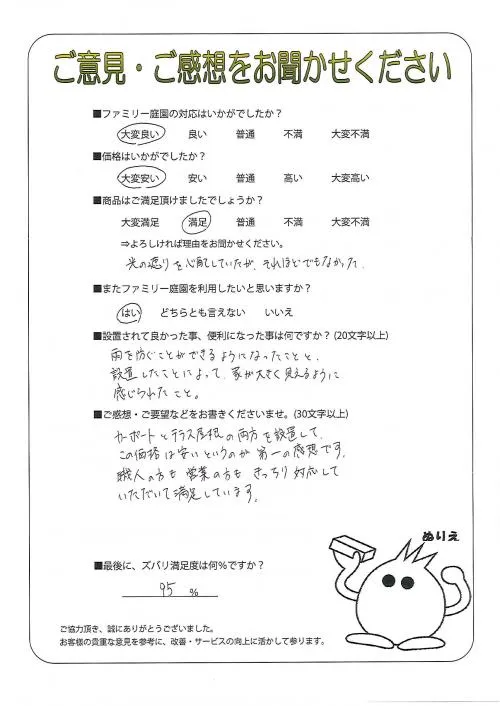 ご意見・ご感想をお聞かせください
■ファミリー庭園の対応はいかがでしたか？
大変良い 良い 普通 不満 大変不満
■価格はいかがでしたか？
大変安い 安い 普通 高い 大変高い
■商品はご満足頂けましたでしょうか？
大変満足 満足 普通 不満 大変不満
⇒よろしければ理由をお聞かせください。
光の遮りを心配していたが、それほどでもなかった.
■またファミリー庭園を利用したいと思いますか？
はい どちらとも言えない いいえ
■設置されて良かった事、便利になった事は何ですか？(20文字以上)
雨を防ぐことができるようになったことと、
設置したことによって、家が大きく見えるように
感じられたこと。
■ご感想・ご要望などをお書きくださいませ。(30文字以上)
カーポートとテラス屋根の両方を設置して、
この価格は安いというのが第一の感想です。
職人の方も営業の方もきっちり対応して
いただいて満足しています。
ぬりえ
■最後に、ズバリ満足度は何％ですか？
95 %
ご協力頂き、誠にありがとうございました。
お客様の貴重な意見を参考に、改善・サービスの向上に活かして参ります。